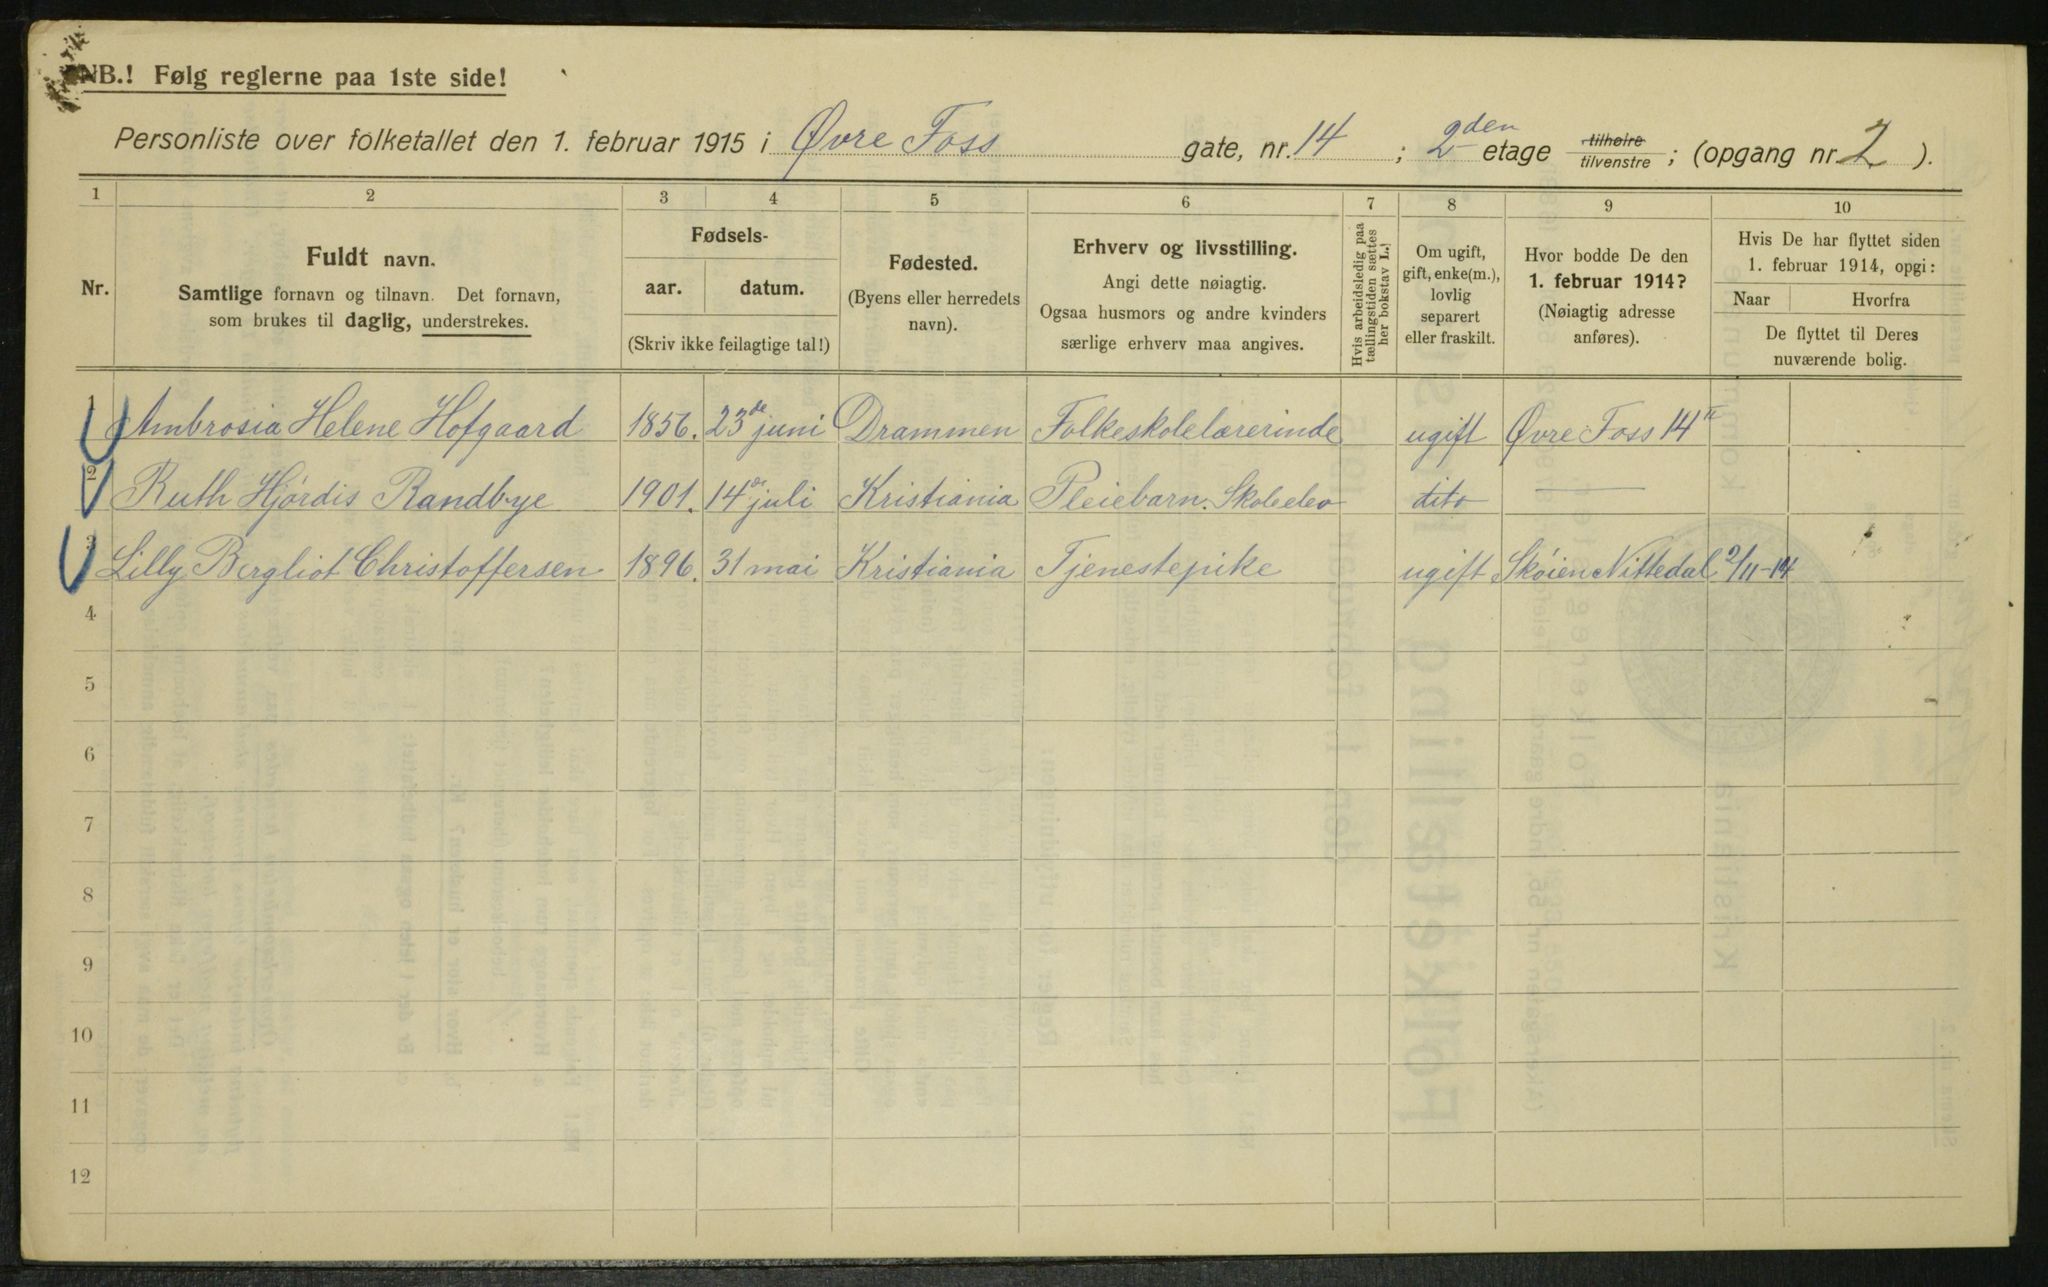 NB.! Følg reglerne paa 1ste side!
Personliste over folketallet den 1. februar 1915 i Øvre Foss gate, nr. 14 ; 2den etage tilhøire tilvenstre ; (opgang nr. 2 ).
1 2 3 4 5 6 7 8 9 10
Nr.
Fuldt navn.
Samtlige fornavn og tilnavn. Det fornavn,
som brukes til daglig, understrekes.
Fødsels-
aar. datum.
(Skriv ikke feilagtige tal!)
Fødested.
(Byens eller herredets
navn).
Erhverv og livsstilling.
Angi dette nøiagtig.
Ogsaa husmors og andre kvinders
særlige erhverv maa angives.
Hvis arbeidsledig paa
tællingstiden sættes
her bokstav L.!
Om ugift,
gift, enke(m.),
lovlig
separert
eller fraskilt.
Hvor bodde De den
1. februar 1914?
(Nøiagtig adresse
anføres).
Hvis De har flyttet siden
1. februar 1914, opgi:
Naar Hvorfra
De flyttet til Deres
nuværende bolig.
1 Ambrosia Helene Hofgaard 1856. 23de juni Drammen Folkeskolelærerinde ugift Øvre Foss 14 II
2 Ruth Hjördis Randbye 1901. 14de juli Kristiania Pleiebarn. Skoleelev dito —
3 Lilly Bergliot Christoffersen 1896. 31 mai Kristiania Tjenestepike ugift Sköien Nittedal 2/11-14
4
5
6
7
8
9
10
11
12